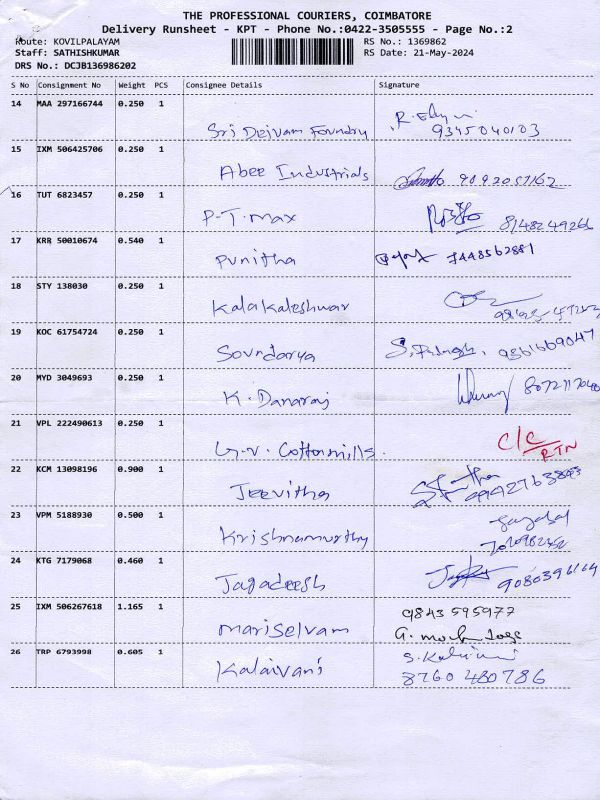 THE PROFESSIONAL COURIERS, COIMBATORE
Delivery Runsheet - KPT - Phone No.:0422-3505555 - Page No.:2
Route: KOVILPALAYAM
RS No.: 1369862
Staff: SATHISHKUMAR
RS Date: 21-May-2024
DRS No.: DCJB136986202
S No Consignment No Weight PCS Consignee Details Signature
14 MAA 297166744 0.250 1
Sri Deivam Foundry 9345040103
15 IXM 506425706 0.250 1
Abee Industrials 9092057162
16 TUT 6823457 0.250 1
P.T.max 8148249266
17 KRR 50010674 0.540 1
Punitha 7448562881
18 STY 138030 0.250 1
Kalakaleshwar
19 KOC 61754724 0.250 1
Soundarya 9361669047
20 MYD 3049693 0.250 1
K. Danaraj
21 VPL 222490613 0.250 1
G.V. Cottonmills. C/C
RTN
22 KCM 13098196 0.900 1
Jeevitha
23 VPM 5188930 0.500 1
Krishnamurthy
24 KTG 7179068 0.460 1
Jagadeesh 9080396164
25 IXM 506267618 1.165 1
9843595977
Mariselvam
26 TRP 6793998 0.605 1
Kalaivani
8760 480786